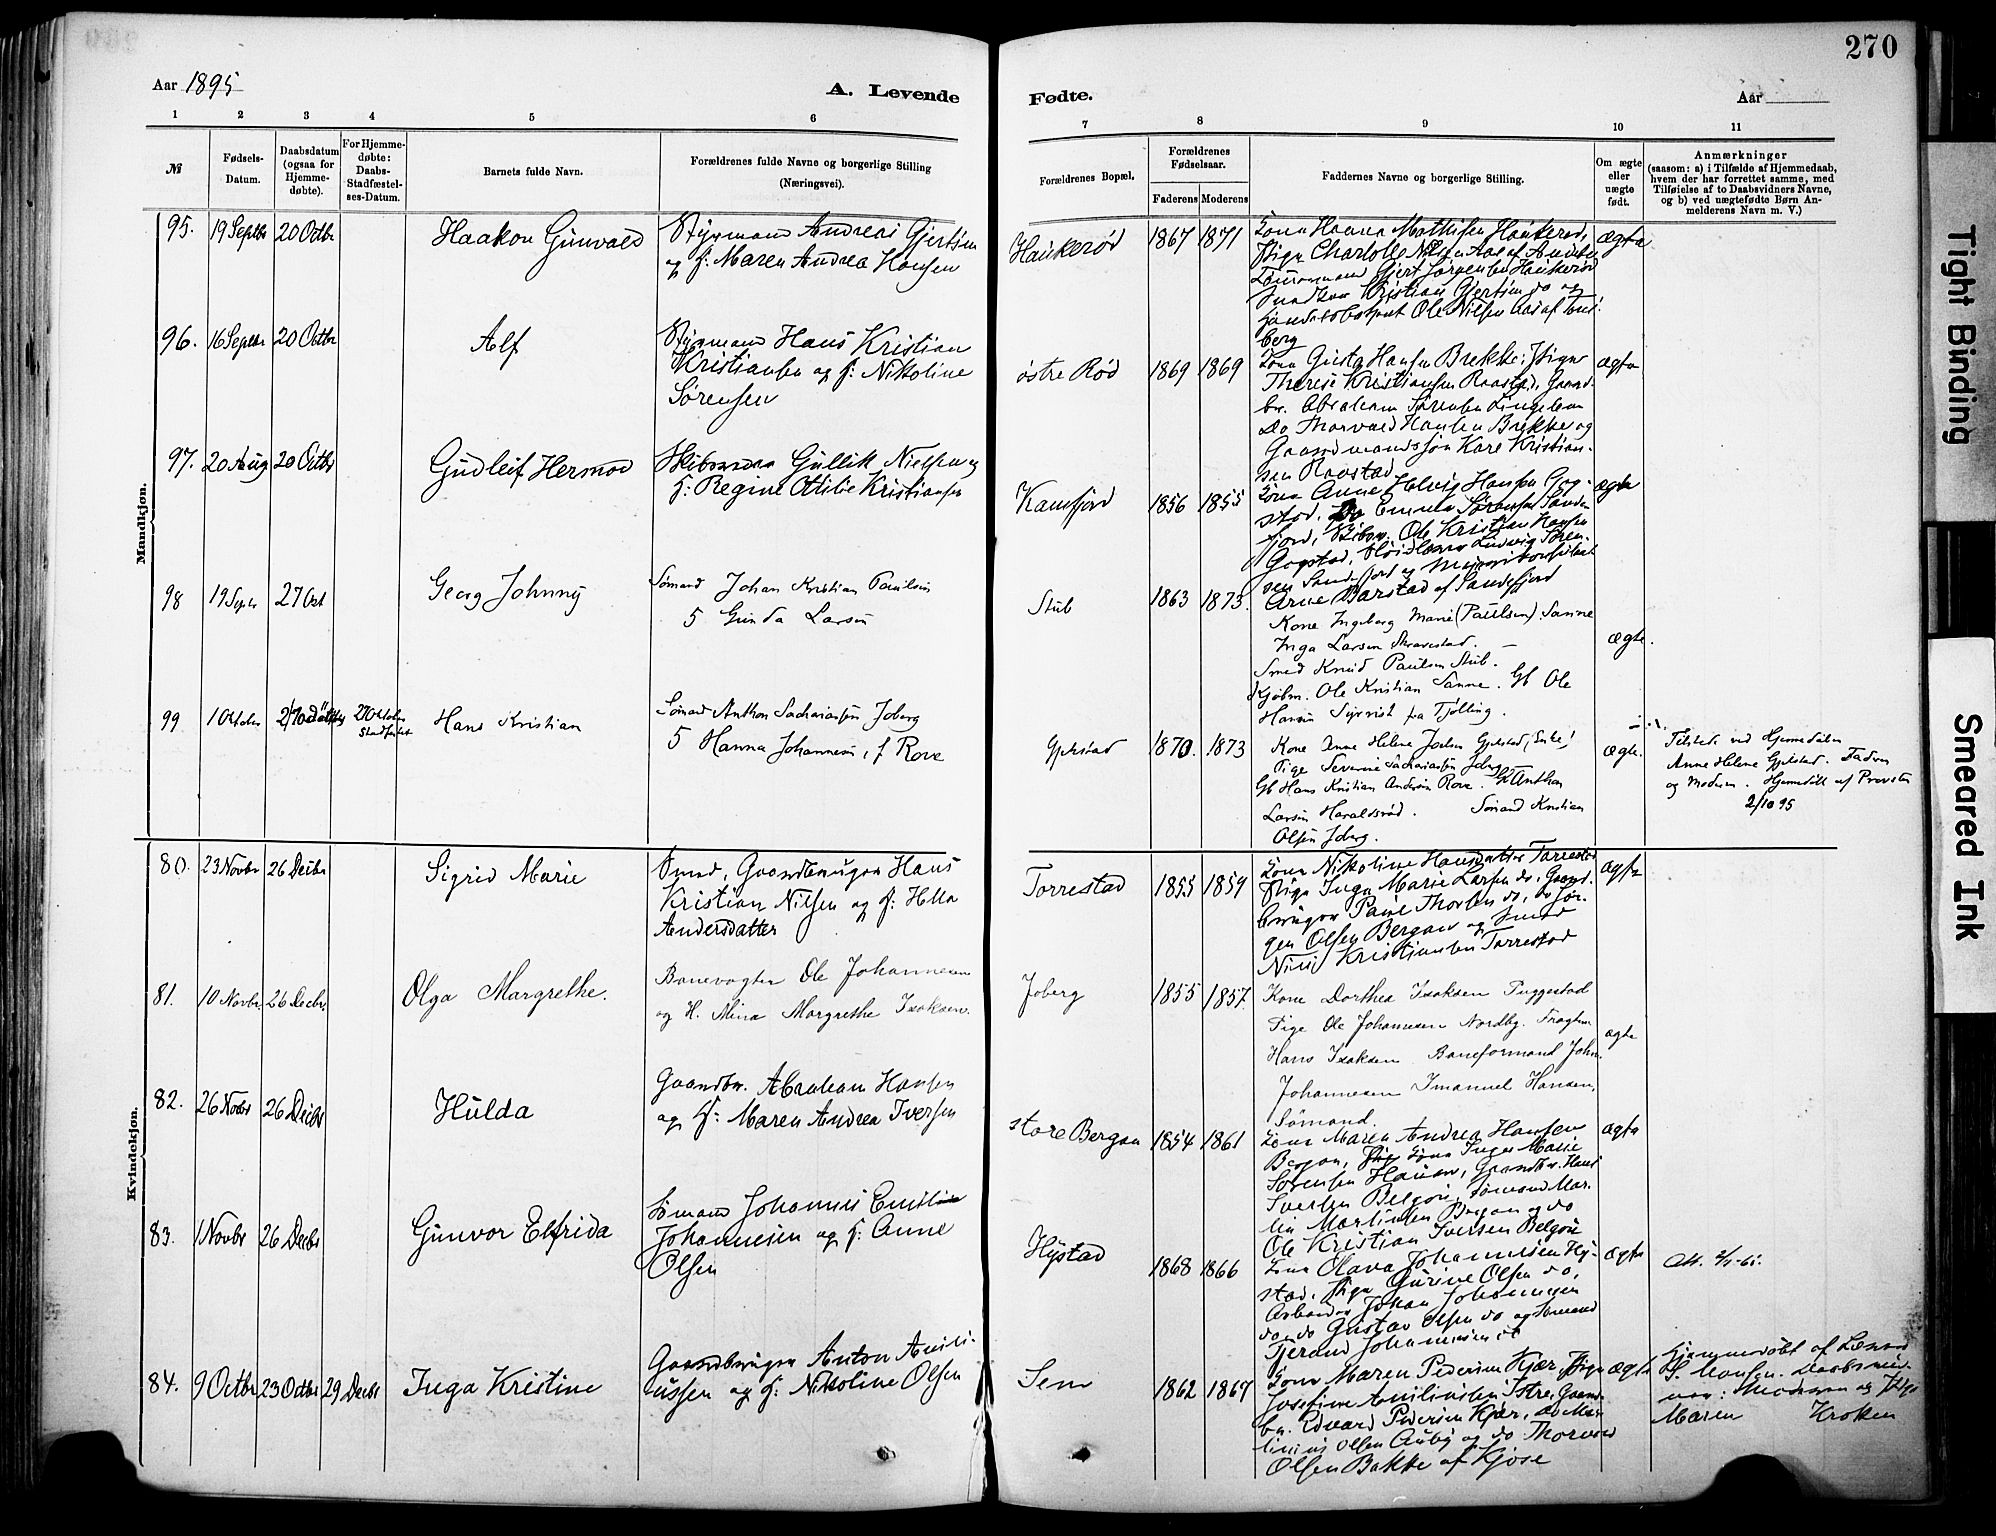 270
Aar 1895
A. Levende
Fødte.
Aar
1 2 3 4 5 6 7 8 9 10 11
№
Fødsels-
Datum.
Daabsdatum
(ogsaa for
Hjemme-
døbte).
For Hjemme-
døbte:
Daabs-
Stadfæstel-
ses-Datum.
Barnets fulde Navn.
Forældrenes fulde Navne og borgerlige Stilling
(Næringsvei).
Forældrenes Bopæl.
Forældrenes
Fødselsaar.
Faderens Moderens
Faddernes Navne og borgerlige Stilling.
Om ægte
eller
uægte
født.
Anmærkninger
(saasom: a) i Tilfælde af Hjemmedaab,
hvem der har forrettet samme, med
Tilføielse af to Daabsvidners Navne,
og b) ved uægtefødte Børn An-
melderens Navn m. V.)
Mandkjøn.
95. 19 Septbr 20 Octbr
Haakon Gunvald
Styrmand Andreas Gjertsen
og H: Maren Andrea Hansen
Haukerød 1867 1871
Kona Hanna Mathisen Haukerød,
Pige Charlotte
Gjert Jørgensen Haukerød
Kristian Gjertsen do og
Ole Nilsen Aas af Tøns-
berg
ægte
96. 16 Septbr 20 Octbr
Alf
Styrmand Hans Kristian
Kristiansen og H: Nikoline
Sørensen
østre Rød 1869 1869
Kona Gusta Hansen Brekke; Pigen
Therese Kristiansen Raastad, Gaard-
br. Abraham Sørensen
Do Thorvald Hansen Brekke og
Gaardmandssøn Kare Kristian-
sen Raastad
ægte
97. 20 Aug 20 Octbr
Gudleif Hermod
Skibsmand Gullik Nielsen og
H: Regine Otilie Kristiansen
Kamfjord 1856 1855
Kona Anne Helvig Hansen Gog-
stad, Do Emma Sørensen Sande-
fjord, Skibsm. Ole Kristian Hansen
Gogstad, Ludvig Søren-
sen Sandefjord og
Arne Barstad af Sandefjord
ægte
98 19 Septr 27 Oct
Georg Johnny
Sømand Johan Kristian Paulsen
H Gunda Larsen
Stub 1863 1873.
Kone Ingeborg Marie (Paulsen) Sanne
Inga Larsen Skravestad.
Smed Knud Paulsen Stub.
Kjøbm. Ole Kristian Sanne. Gb Ole
Hansen Syrrist fra Tjølling.
ægte.
99 1 October 27 October
stadfæstet
Hans Kristian
Sømand Anthon Sachariassen Joberg
H Hanna Johannesen, f Rove
Gjekstad 1870. 1873
Kone Anne Helene Joelsen Gjekstad, Enke,
Pige Severine Sachariassen Joberg
Gb Hans Kristian Andersen Rove. Gb Anthon
Larsen Haraldsrød. Sømand Kristian
Olsen Joberg.
ægte.
Tilstede ved Hjemmedåben
Anne Helene Gjekstad. Faderen
og Moderen. Hjemmedøbt af Provsten
2/10 95
Kvindekjøn.
80. 23 Novbr 26 Decbr
Sigrid Marie
Smed, Gaardbruger Hans
Kristian Nilsen og H: Hella
Andersdatter
Torrestad 1855 1859
Kona Nikoline Hansdatter Torrestad
Pige Inga Marie Larsen do, Gaard-
bruger Paul Thorsen do, do Jør-
gen Olsen Bergan og Smed
Nils Kristiansen Torrestad
ægte
81. 10 Novbr 26 Decbr.
Olga Margrethe.
Banevogter Ole Johannesen
og H. Mina Margrethe Isaksen.
Joberg 1855 1857.
Kone Dorthea Isaksen Puggestad
Pige Ole Johannesen Nordby. Fragtm.
Hans Isaksen Baneformand John.
Johannesen Imanuel Hansen,
Sømand.
ægte
82. 26 Novbr 26 Decbr
Hulda
Gaardbr. Abraham Hansen
og H: Maren Andrea Iversen
store Bergan 1854 1861
Kona Maren Andrea Hansen
Bergan, Kona Inger Marie
Sørensen Hauan, Gaardbr. Hans
Iversen Belgøn, Sømand Mar-
tin Martinsen Bergan og do
Ole Kristian Iversen Belgøn
ægte
83. 1 Novbr 26 Decbr
Gunvor Elfrida
Sømand Johannes Emil
Johannesen og H: Anne
Olsen
Hystad 1868 1866
Kona Olava Johannesen Hy-
stad, Pige Gurine Olsen do,
Arbeider Johan Johannesen
do, do Gustav Olsen do og Sømand
Tjerand Johannesen
ægte
84. 9 Octbr 23 Octbr 29 Decbr
Inga Kristine
Gaardbruger Anton Amili-
ussen og H: Nikoline Olsen
Sem 1862 1867
Kona Maren Pedersen Kjær, Pige
Josefine Amiliusen Istre, Gaard-
br. Edvard Pedersen Kjær, do Mar-
tinius Olsen Auby og do Thorvald
Olsen Bakke af Kjose
ægte
Hjemmedøbt af
S. Hansen. Daabsvid-
ner: og Pige
Maren Kroken
Tight Binding
Smeared Ink